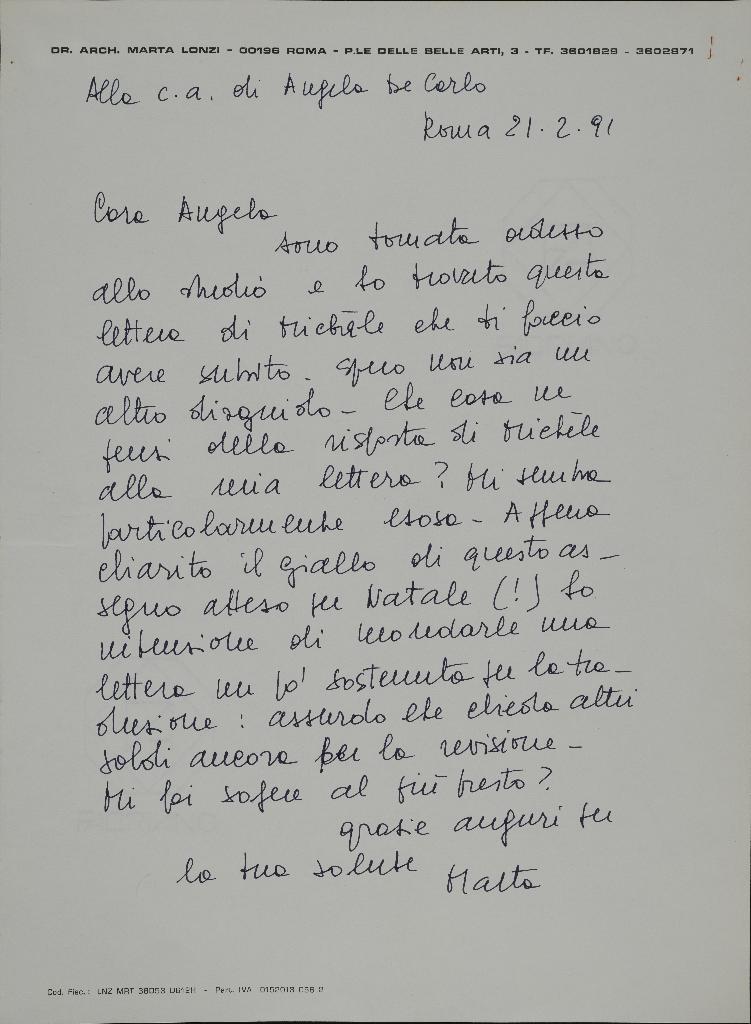 DR. ARCH. MARTA LONZI - 00196 ROMA - P.LE DELLE BELLE ARTI, 3 - TF. 3601829 - 3602871
Alla c.a. di Angela De Carlo
Roma 21.2.91
Cara Angela
sono tornata adesso
allo studio e ho trovato questa
lettera di Michèle che ti faccio
avere subito. Spero non sia un
altro disguido - Che cosa ne
pensi della risposta di Michèle
alla mia lettera? Mi sembra
particolarmente esosa - Appena
chiarito il giallo di questo as-
segno atteso per Natale (!) ho
intenzione di mandarle una
lettera un po' sostenuta per la tra-
duzione: assurdo che chieda altri
soldi ancora per la revisione -
Mi fai sapere al più presto?
grazie auguri per
la tua salute Marta
Cod. Fisc.: LNZ MRT 38D53 D612H - Part. IVA